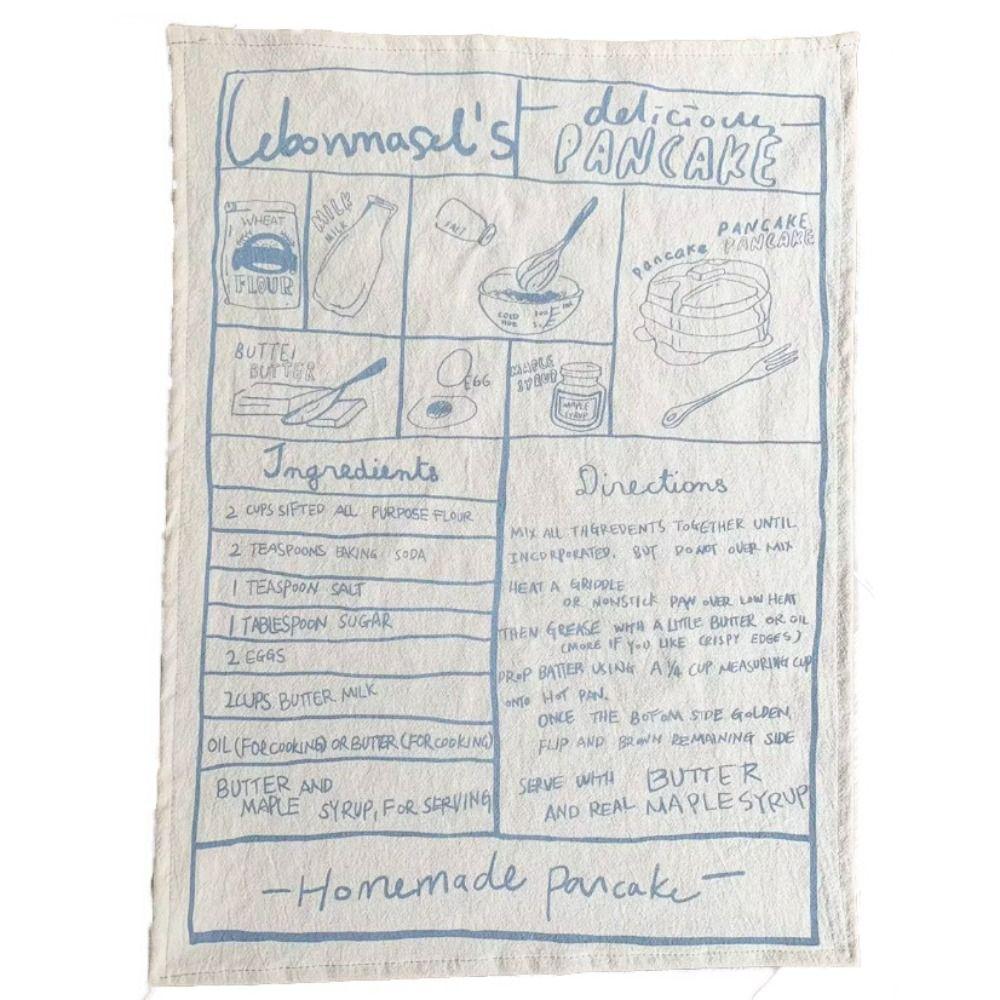 Lebonmasel's
delicious
PANCAKE
WHEAT
FLOUR
MILK
MILK
SALT
COLD
PANCAKE
PANCAKE
pancake
BUTTE
BUTTER
EGG
MAPLE
SYRUP
MAPLE
SYRUP
Ingredients
2 CUPS SIFTED ALL PURPOSE FLOUR
2 TEASPOONS BAKING SODA
1 TEASPOON SALT
1 TABLESPOON SUGAR
2 EGGS
2CUPS BUTTER MILK
OIL (FOR COOKING) OR BUTTER (FOR COOKING)
BUTTER AND
MAPLE SYRUP, FOR SERVING
Directions
MIX ALL INGREDENTS TOGETHER UNTIL
INCORPORATED. BUT DO NOT OVER MIX
HEAT A GRIDDLE
OR NONSTICK PAN OVER LOW HEAT
THEN GREASE WITH A LITTLE BUTTER OR OIL
(MORE IF YOU LIKE CRISPY EDGES)
DROP BATTER USING A ¼ CUP MEASURING CUP
ONTO HOT PAN.
ONCE THE BOTOM SIDE GOLDEN
FLIP AND BROWN REMAINING SIDE
SERVE WITH BUTTER
AND REAL MAPLE SYRUP
-Homemade pancake-